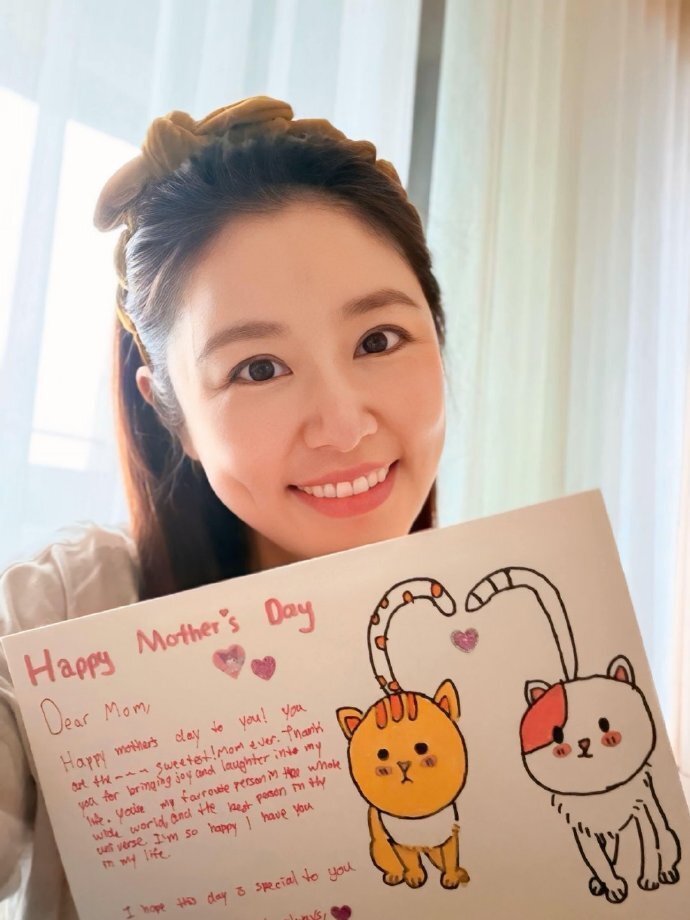 Happy Mother's Day
Dear Mom,
Happy mothers day to you! You
are the ---- sweetest! Mom ever. Thank
you for bringing joy and laughter into my
life. You're my favroute person in the whole
wide world, and the best person in the
universe. I'm so happy I have you
in my life.
I hope this day is special to you
always,